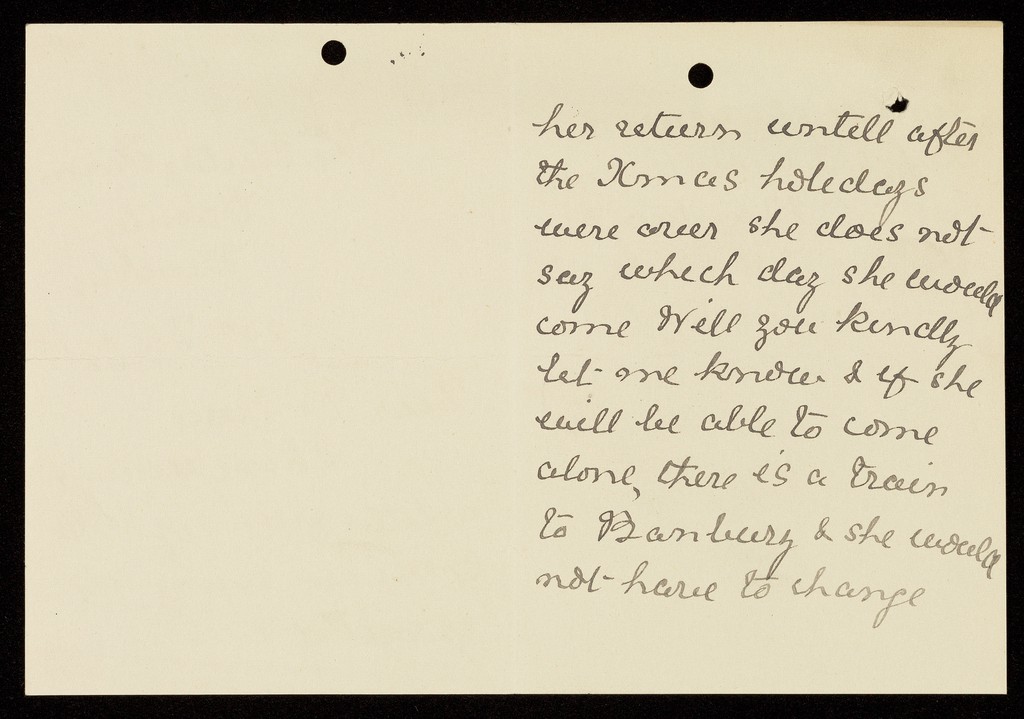 her return untell after
the Xmas holedays
were over she does not
say which day she would
come Will you kindly
let me know & if she
will be able to come
alone, there is a train
to Banbury & she would
not have to change